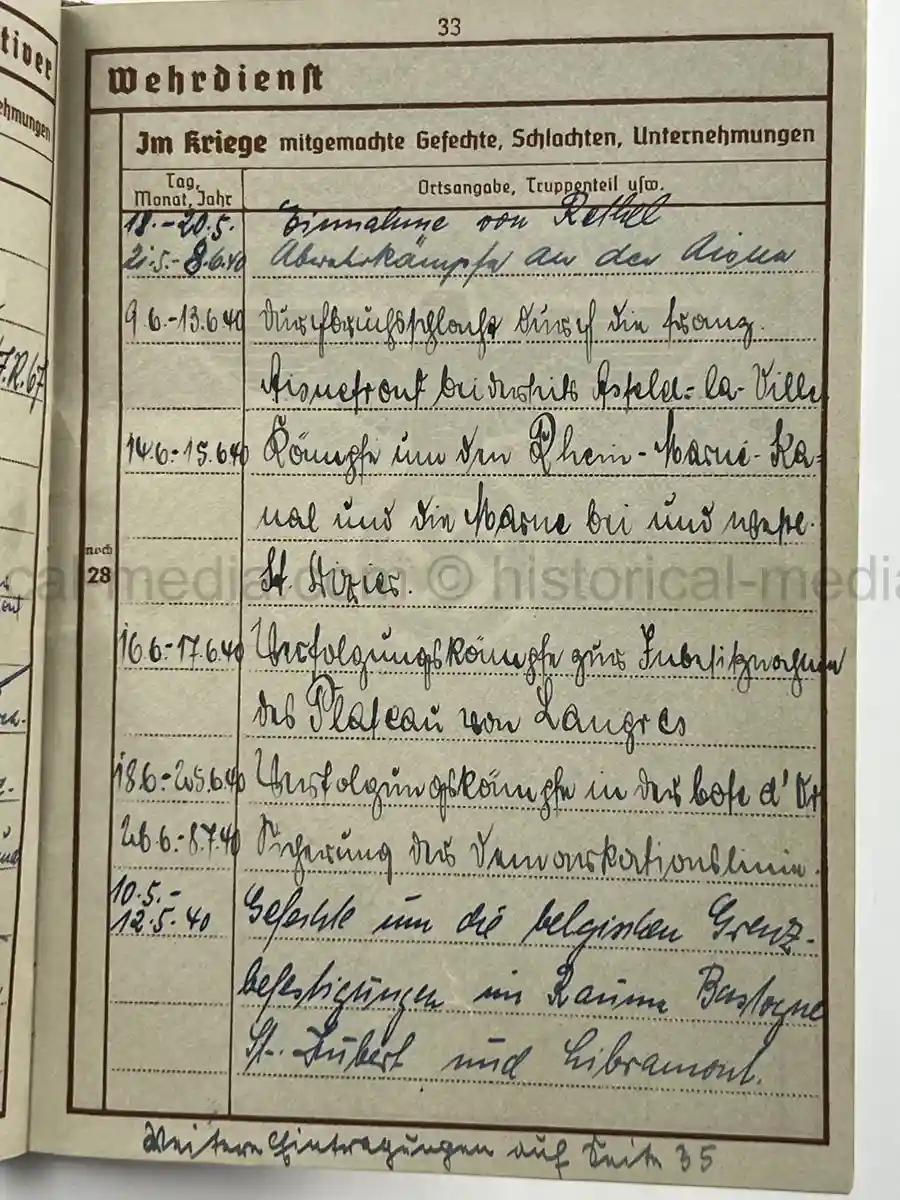 33
tiver
ehmungen
J.R.67
Wehrdienst
Im Kriege mitgemachte Gefechte, Schlachten, Unternehmungen
Tag, Monat, Jahr
Ortsangabe, Truppenteil usw.
18.-20.5. Einnahme von Rethel
21.5.-8.6.40 Abwehrkämpfe an der Aisne
9.6.-13.6.40 Durchbruchsschlacht durch die franz.
Aisnefront beiderseits Asfeld-la-Ville
14.6.-15.6.40 Kämpfe um den Rhein-Marne-Ka-
nal und die Marne bei und westl.
noch 28
St. Dizier.
cal-media.com © historical-media
16.6.-17.6.40 Verfolgungskämpfe zur Inbesitznahme
des Plateau von Langres
18.6.-25.6.40 Verfolgungskämpfe in der Cote d'Or
26.6.-8.7.40 Sicherung der Demarkationslinie.
10.5.-
12.5.40 Gefechte um die belgischen Grenz-
befestigungen im Raume Bastogne
St. Hubert und Libramont.
Weitere Eintragungen auf Seite 35